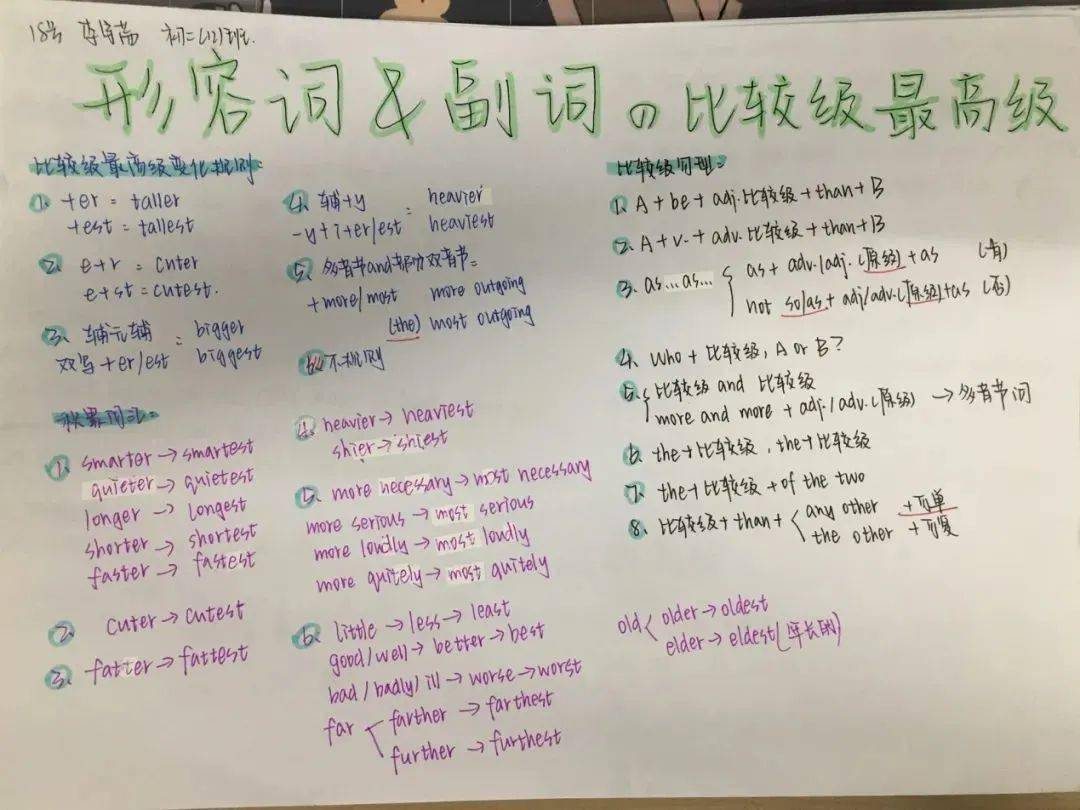 18号 初二(12)班.
形容词 & 副词 の 比较级最高级
比较级最高级变化规则:
1. +er = taller
+est = tallest
2. e+r = cuter
e+st = cutest.
3. 辅元辅 : bigger
双写+er/est biggest
4. 辅+y = heavier
-y+i+er/est heaviest
5. 多音节and部分双音节=
+more/most more outgoing
(the) most outgoing
6. 不规则
积累词汇:
1. smarter → smartest
quieter → quietest
longer → longest
shorter → shortest
faster → fastest
2. cuter → cutest
3. fatter → fattest
4. heavier → heaviest
shier → shiest
5. more necessary → most necessary
more serious → most serious
more loudly → most loudly
more quitely → most quitely
6. little → less → least
good/well → better → best
bad/badly/ill → worse → worst
far farther → farthest
further → furthest
比较级句型:
1. A+be+adj.比较级+than+B
2. A+v.+adv.比较级+than+B
3. as...as... as+adv./adj.(原级)+as (肯)
not so/as+adj/adv.(原级)+as (否)
4. Who+比较级, A or B?
5. 比较级 and 比较级
more and more + adj./adv.(原级) → 多音节词
6. the+比较级, the+比较级
7. the+比较级+of the two
8. 比较级+than+ any other +可单
the other +可复
old older → oldest
elder → eldest(年长的)